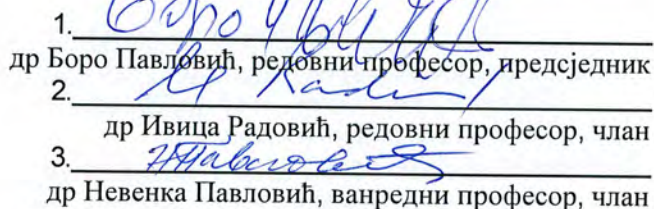 1.
др Боро Павловић, редовни професор, предсједник
2.
др Ивица Радовић, редовни професор, члан
3.
др Невенка Павловић, ванредни професор, члан